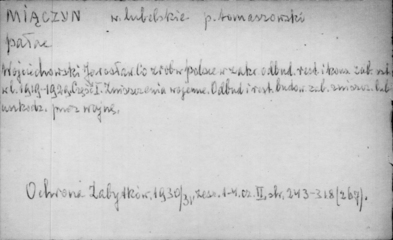 MIĄCZYN w. lubelskie p. tomaszowski
pałac
Wojciechowski Jarosław. Co zrob. w Polsce w zakr. odbud. rest. i kons. zab. szt.
w l. 1919-1929. Część I. Zniszczenia wojenne. Odbud. i rest. budow. zab. zniszcz. lub
uszkodz. przez wojnę.
Ochrona Zabytków, 1930/31, zesz. 1-4, cz. II, str. 243-318 (267).